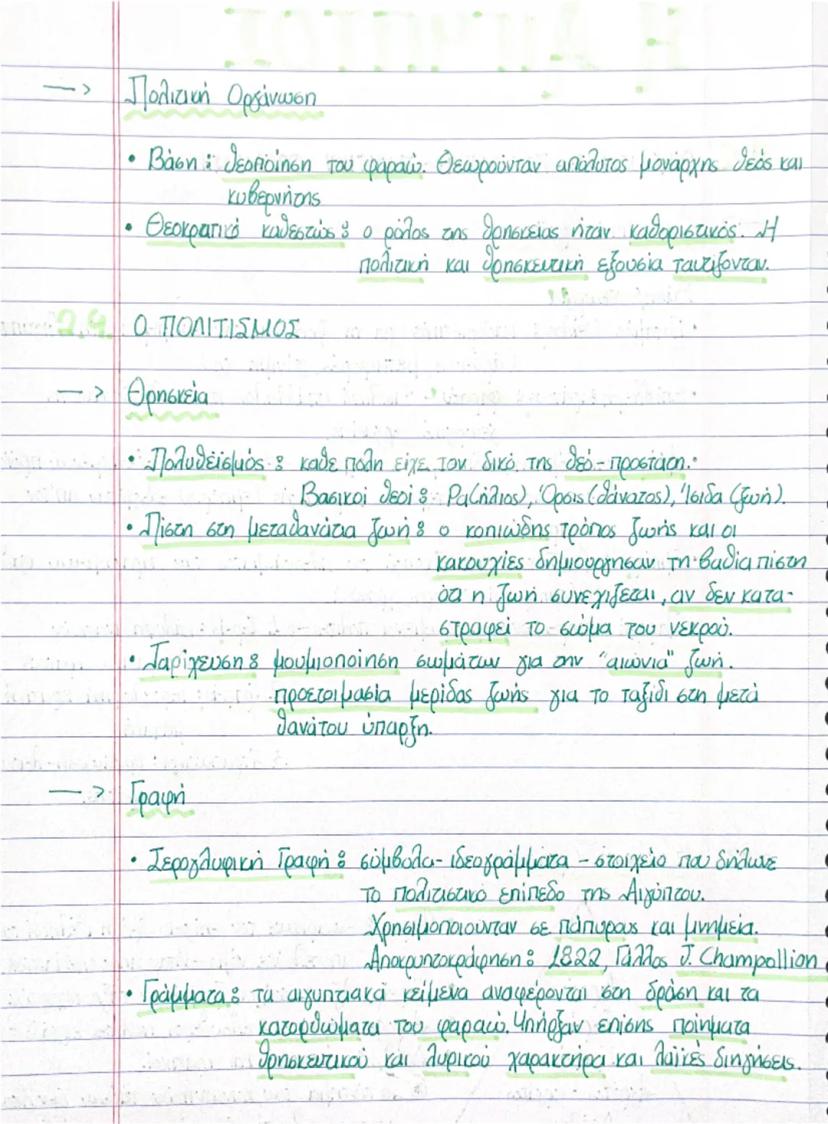 → Πολιτική Οργάνωση
• Βάση : θεοποίηση του φαραώ. Θεωρούνταν απόλυτος μονάρχης θεός και
κυβερνήτης
• Θεοκρατικό καθεστώς : ο ρόλος της θρησκείας ήταν καθοριστικός. Η
πολιτική και θρησκευτική εξουσία ταυτιζονταν.
2.4. Ο ΠΟΛΙΤΙΣΜΟΣ
→ Θρησκεία
• Πολυθεϊσμός : καθε πόλη είχε τον δικό της θεό-προστάτη.
Βασικοί θεοί : Ρα(ήλιος), Όρσις (θάνατος), Ίσιδα (ζωή).
• Πίστη στη μεταθανάτια ζωή : ο κοπιώδης τρόπος ζωής και οι
κακουχίες δημιουργησαν τη βαθια πίστη
ότι η ζωή συνεχιζεται, αν δεν κατα-
στραφεί το σώμα του νεκρού.
• Ταρίχευση : μουμιοποίηση σωμάτων για την "αιώνια" ζωή.
προετοιμασία μερίδας ζωής για το ταξίδι στη μετά
θανάτου ύπαρξη.
→ Γραφή
• Ιερογλυφική Γραφή : σύμβολα-ιδεογράμματα - στοιχείο που δήλωνε
το πολιτιστικό επίπεδο της Αιγύπτου.
Χρησιμοποιούνταν σε πάπυρους και μνημεία.
Αποκρυπτοκράφηση : 1822, Γάλλος J. Champollion
• Γράμματα : τα αιγυπτιακά κείμενα αναφέρονται στη δράση και τα
κατορθώματα του φαραώ. Υπήρξαν επίσης ποίηματα
θρησκευτικού και λυρικού χαρακτήρα και λαϊκές διηγήσεις.